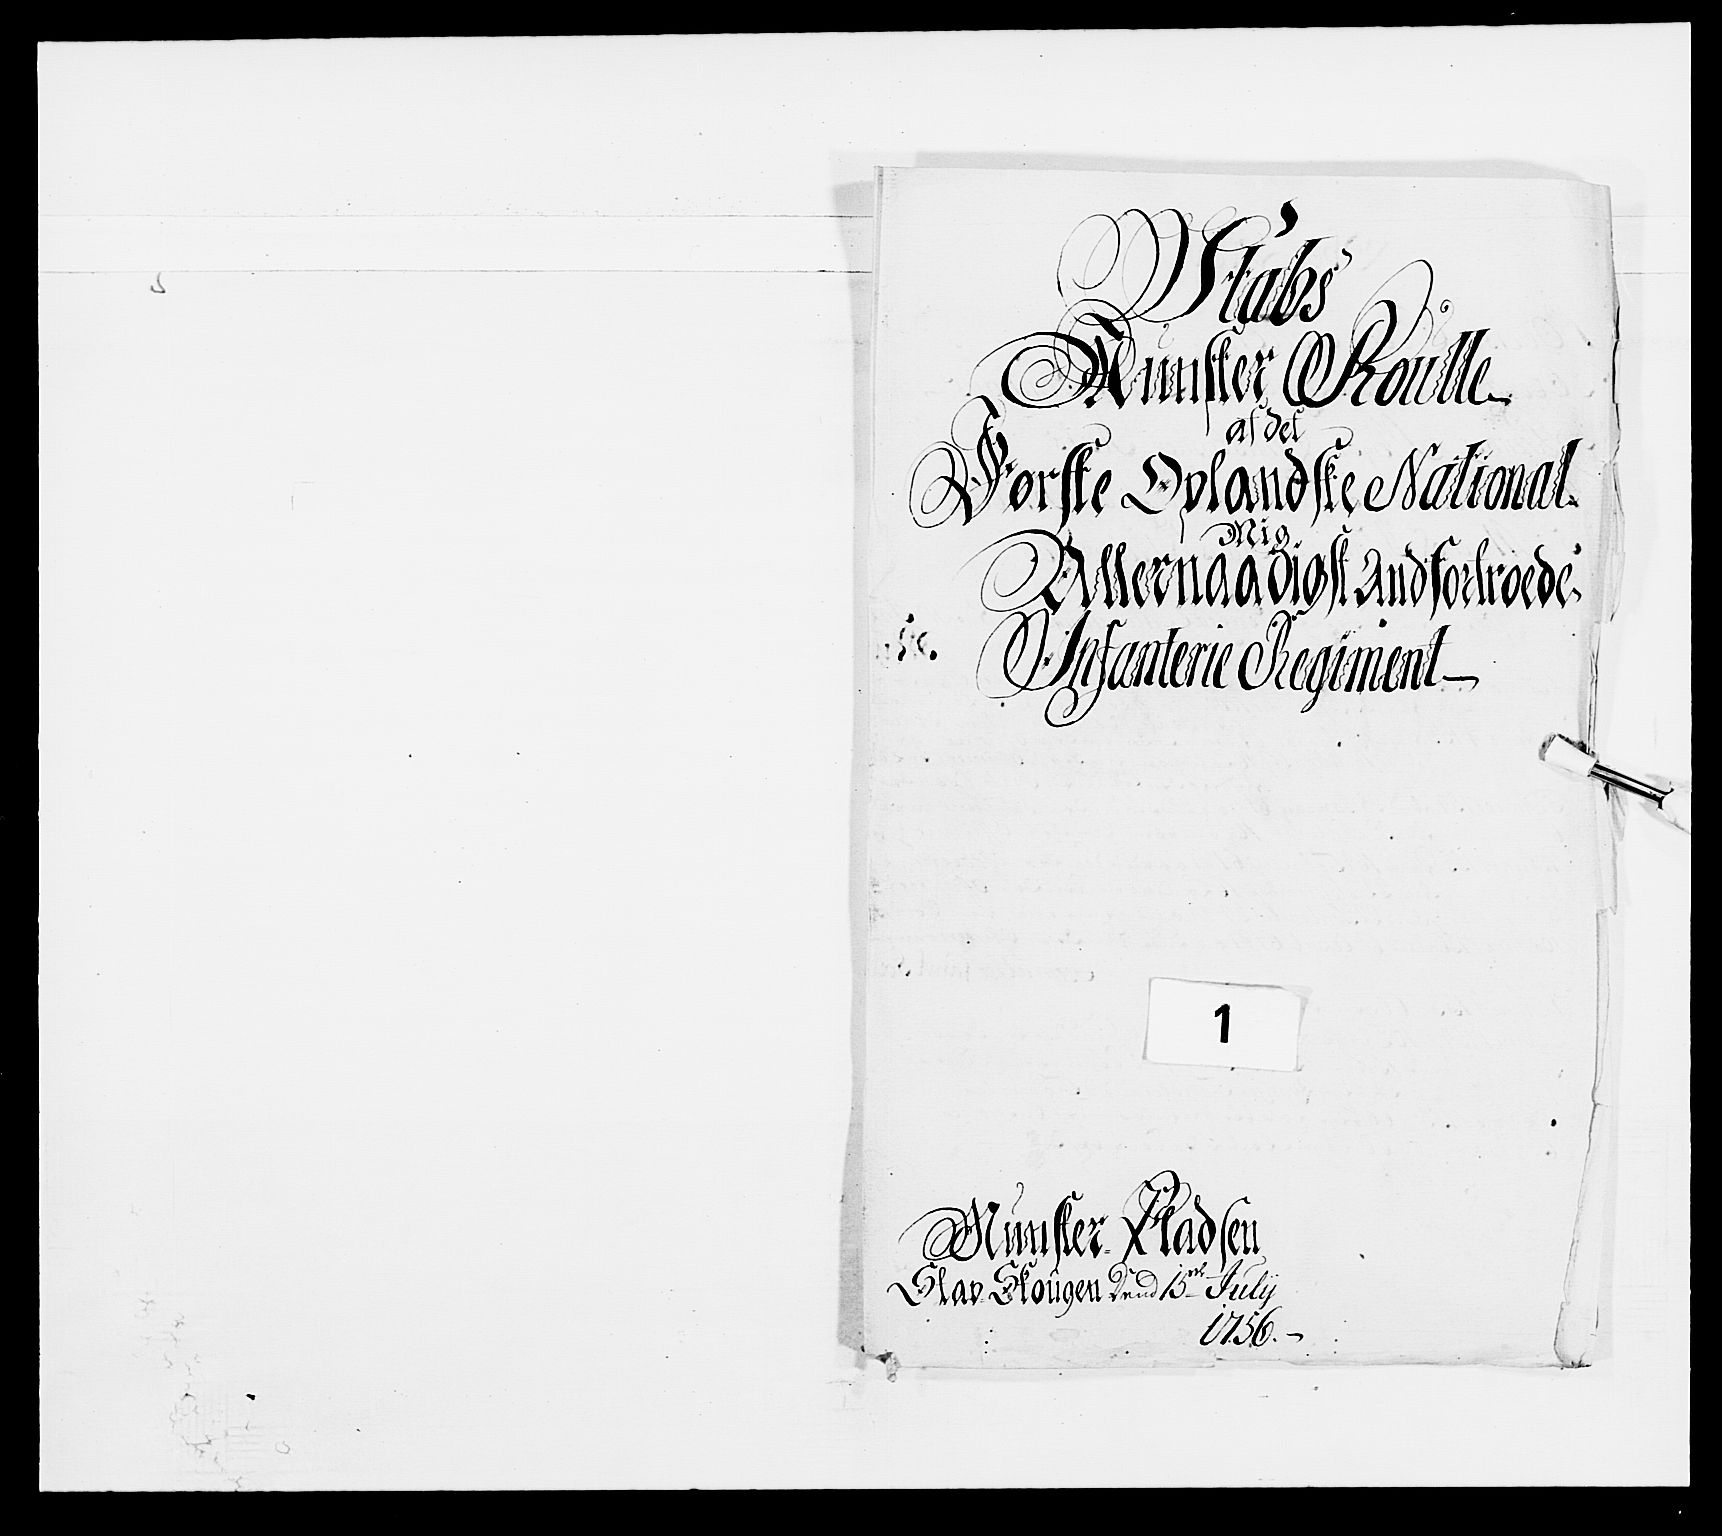 Stabs
Munster Roulle
af det
Første Oplandske National
Mig
Allernaadigst Andfortroede
Infanterie Regiment
1
Munster Pladsen
Slav Skougen Dend 15de July
1756.